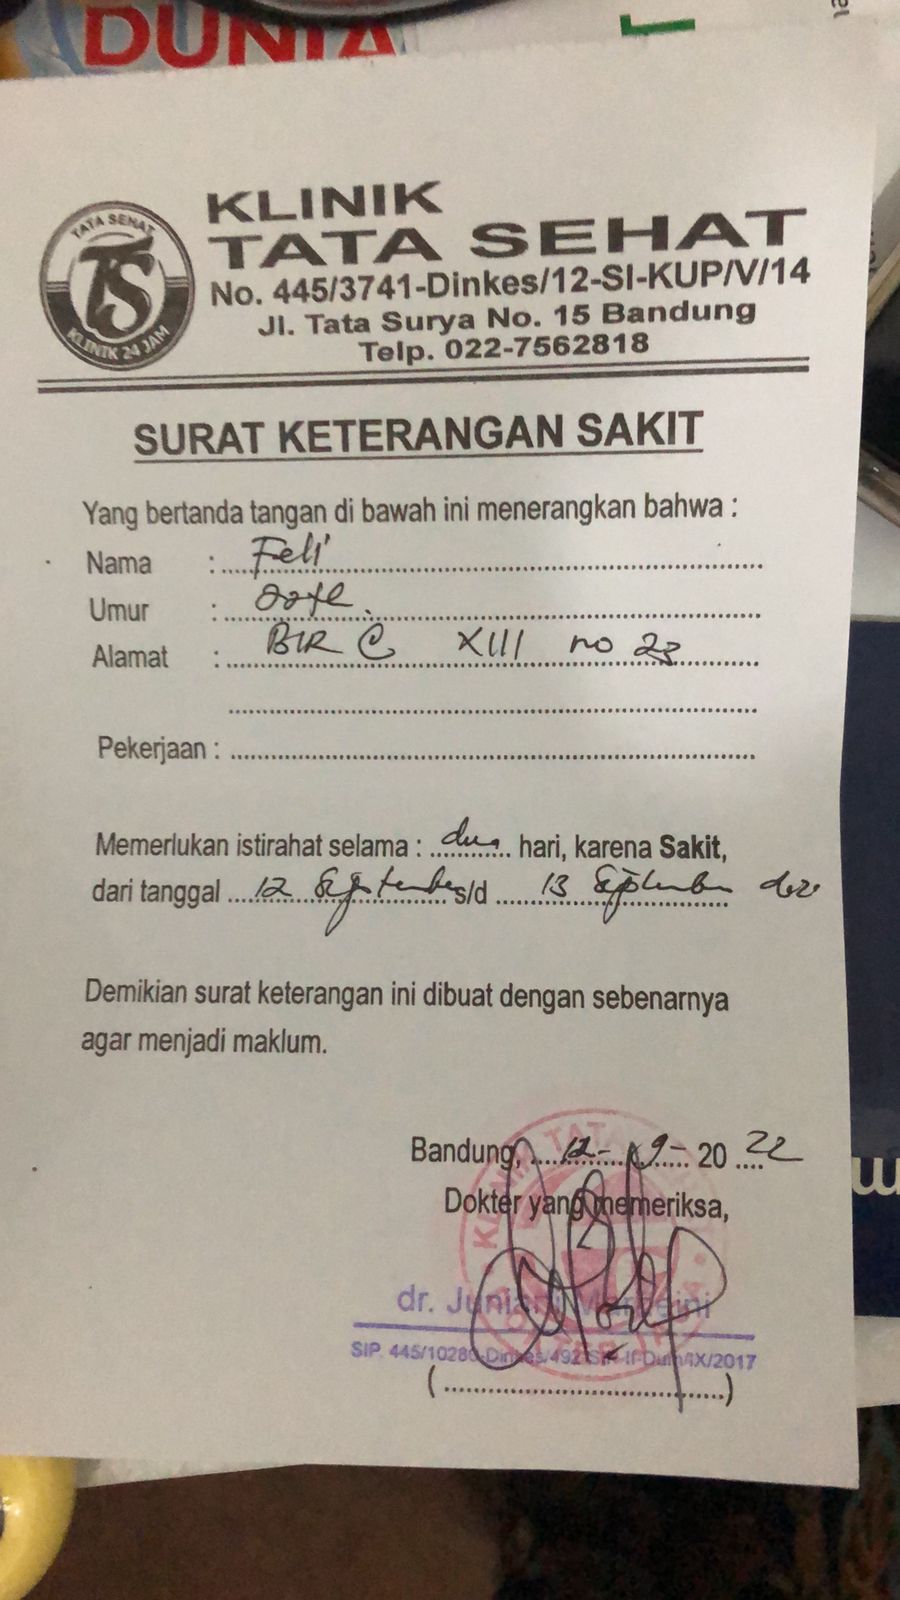 DUNIA
TATA SEHAT
TS
KLINIK 24 JAM
KLINIK
TATA SEHAT
No. 445/3741-Dinkes/12-SI-KUP/V/14
Jl. Tata Surya No. 15 Bandung
Telp. 022-7562818
SURAT KETERANGAN SAKIT
Yang bertanda tangan di bawah ini menerangkan bahwa :
Nama : Feli
Umur :
Alamat : BIR C XIII no 23
Pekerjaan :
Memerlukan istirahat selama : dua hari, karena Sakit,
dari tanggal 12 September s/d 13 September
Demikian surat keterangan ini dibuat dengan sebenarnya
agar menjadi maklum.
Bandung, 12-9-2022
Dokter yang memeriksa,
dr. Juniani
SIP. 445/10280-Dinkes/492-SIP-II-Dum/IX/2017